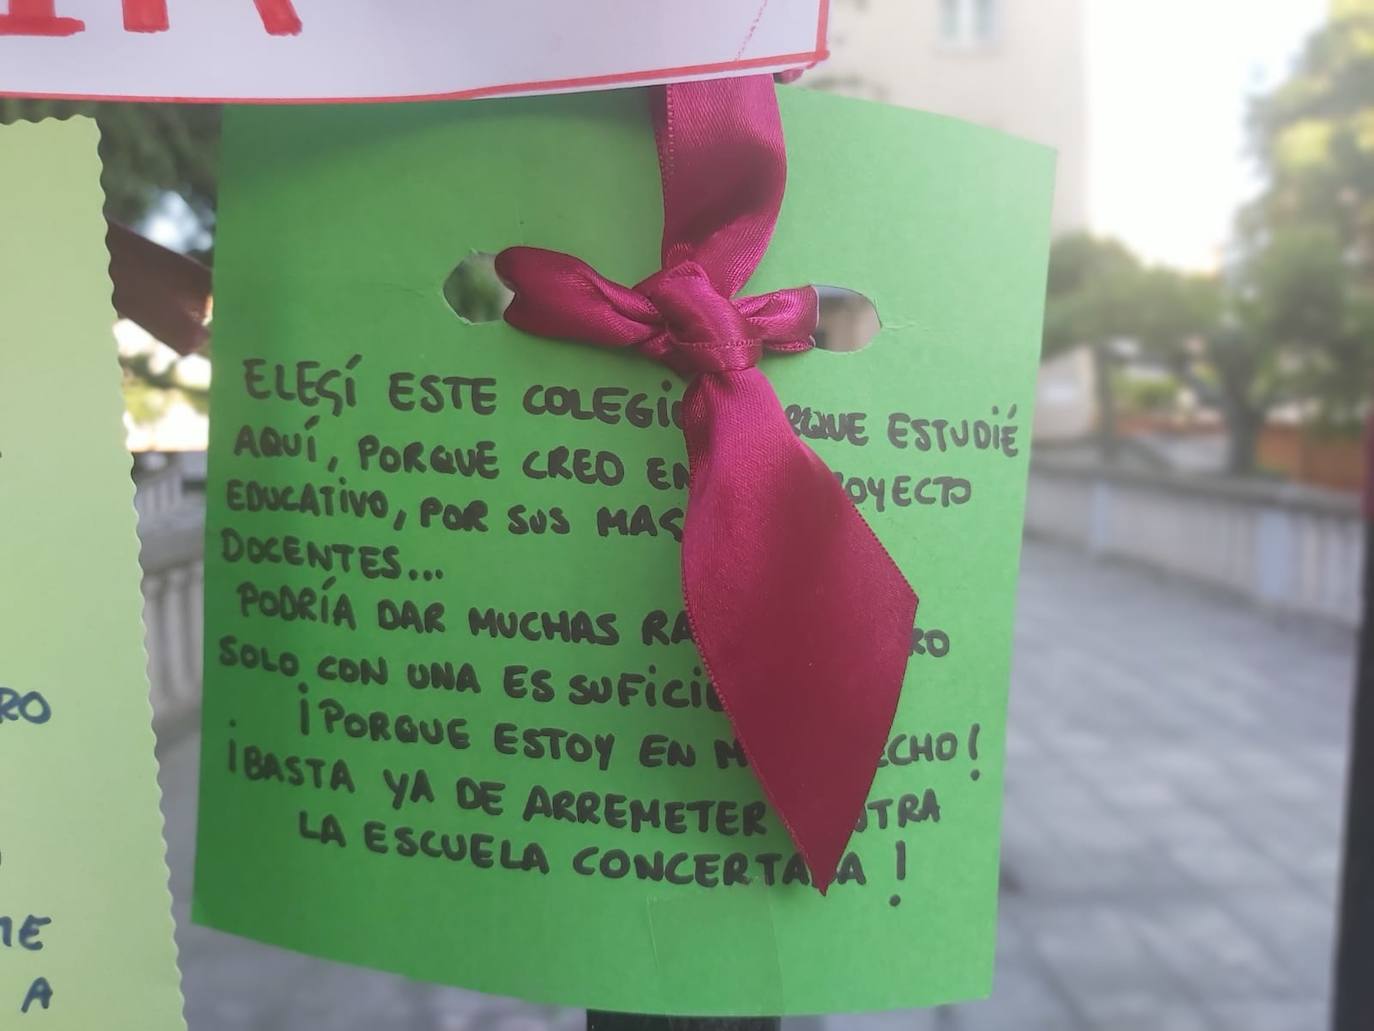 ELEGÍ ESTE COLEGIO PORQUE ESTUDIÉ
AQUÍ, PORQUE CREO EN PROYECTO
EDUCATIVO, POR SUS
DOCENTES...
PODRÍA DAR MUCHAS
SOLO CON UNA ES SUFICIENTE
¡PORQUE ESTOY EN MI DERECHO!
¡BASTA YA DE ARREMETER CONTRA
LA ESCUELA CONCERTADA!
RO
ME
A